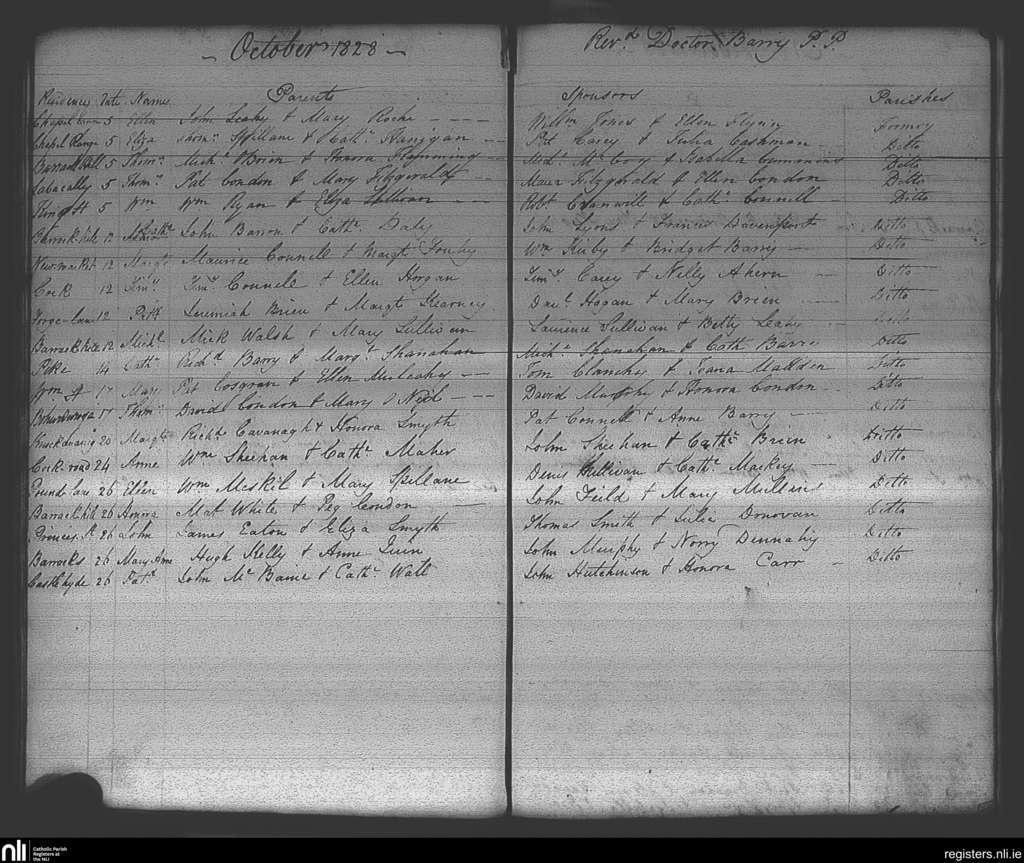 October 1828
Revd Doctor Barry P.P.
Residence Date Names Parents Sponsors Parishes
5 Ellen John Leahy & Mary Roche Willm Jones & Ellen Flynn Fermoy
Chapel Range 5 Eliza Thoms Spillane & Cathe Hanigan Pat Casey & Julia Cashman Ditto
Barrack Hill 5 Thoms Michl Brien & Honora Flemming Michl Mc Coy & Isabella Cummins Ditto
5 Thoms Pat Condon & Mary Fitzgerald Maur Fitzgerald & Ellen Condon Ditto
King St 5 Wm Wm Ryan & Eliza Sullivan Robt Cranwill & Cathe Connell Ditto
Barrack hill 12 Cathe John Barron & Cathe Daly John Lyons & Frances Davenport Ditto
New market 12 Margt Maurice Connell & Margt Wm Kirby & Bridget Barry Ditto
Cork 12 Timy Timy Connell & Ellen Horgan Timy Carey & Nelly Ahern Ditto
Forge-lane 12 Jeremiah Brien & Margt Kearney Danl Hogan & Mary Brien Ditto
Barrack hill 12 Michl Mick Walsh & Mary Sullivan Laurence Sullivan & Betty Leahy Ditto
Pike 14 Cathe Richd Barry & Margt Shanahan Michl Shanahan & Cathe Barry Ditto
Wm St 17 Mary Pat Cosgran & Ellen Mulcahy Tom Clanchy & Joana Madden Ditto
17 Thoms David Condon & Mary O Neil David Murphy & Honora Condon Ditto
20 Margt Richd Cavanagh & Honora Smyth Pat Connell & Anne Barry Ditto
Cork-road 24 Anne Wm Sheehan & Cathe Maher John Sheehan & Cathe Brien Ditto
Pound-lane 26 Ellen Wm Meskil & Mary Spillane Denis Sullivan & Cathe Mackey Ditto
Barrack hill 26 Honora Mat White & Peg Condon John Feild & Mary Mullins Ditto
Princes St 26 John James Eaton & Eliza Smyth Thomas Smith & Julia Donovan Ditto
Barracks 26 Mary Anne Hugh Kelly & Anne Quin John Murphy & Norry Dennahy Ditto
Castlehyde 26 Pat John Mc & Cathe Wall John Hutchinson & Honora Carr Ditto
nli Catholic Parish
Registers at
the NLI
registers.nli.ie